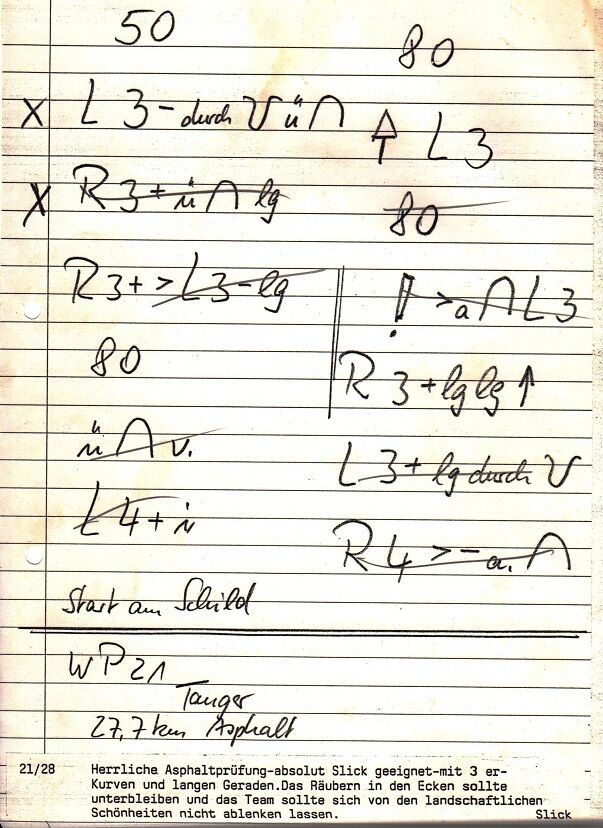 50
X L 3 - durch V ü ∩
X R 3 + ü ∩ lg
R 3 + > L 3 - lg
80
ü ∩ v.
L 4 + ü
Start am Schild
80
L 3
80
! > a ∩ L 3
R 3 + lg lg ↑
L 3 + lg durch V
R 4 > - a. ∩
WP 21
Tanger
27,7 km Asphalt
21/28 Herrliche Asphaltprüfung-absolut Slick geeignet-mit 3 er-
Kurven und langen Geraden.Das Räubern in den Ecken sollte
unterbleiben und das Team sollte sich von den landschaftlichen
Schönheiten nicht ablenken lassen. Slick